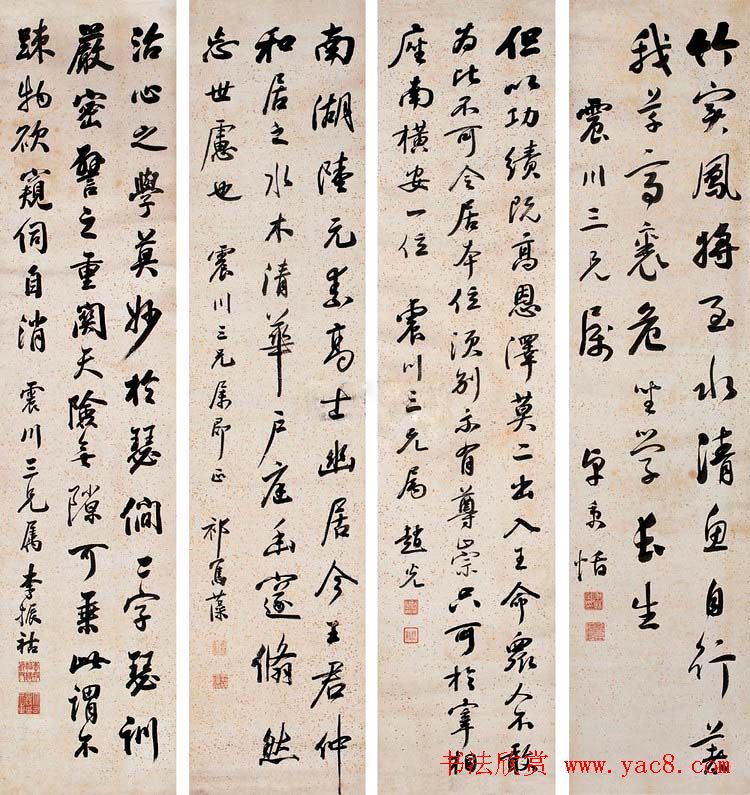 竹實鳳將至水清魚自行著
我草亭裏危坐學長生
震川三兄屬 卓秉恬
但以功績既高恩澤莫二出入王命眾人不敢
為比不可令居本位須別示有尊崇只可於宰相
座南橫安一位 震川三兄屬 趙光
南湖陸元素高士幽居今王君仲
和居之水木清華戶庭幽邃翛然
忘世慮也 震川三兄屬即正 祁寯藻
治心之學莫妙於瑟僩二字瑟訓
嚴密譬之重關天險無隙可乘此謂不
疎物欲窺伺自消 震川三兄屬 李振祜
书法欣赏 www.yac8.com